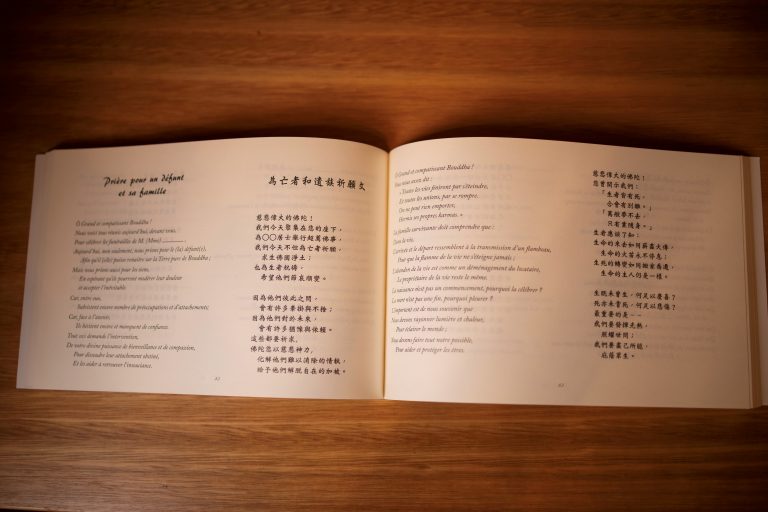 Prière pour un défunt
et sa famille
Ô Grand et compatissant Bouddha !
Nous voici tous réunis aujourd'hui, devant vous,
Pour célébrer les funérailles de M. (Mme)
Aujourd'hui, non seulement, nous prions pour le (la) défunt(e),
Afin qu'il (elle) puisse renaître sur la Terre pure de Bouddha ;
Mais nous prions aussi pour les siens,
En espérant qu'ils pourront modérer leur douleur
et accepter l'inévitable.
Car, entre eux,
Subsistent encore nombre de préoccupations et d'attachements;
Car, face à l'avenir,
Ils hésitent encore et manquent de confiance.
Tout ceci demande l'intervention,
De votre divine puissance de bienveillance et de compassion,
Pour dissoudre leur attachement obstiné,
Et les aider à retrouver l'insouciance.
為亡者和遺族祈願文
慈悲偉大的佛陀！
我們今天聚集在您的座下，
為○○居士舉行超薦佛事，
我們今天不但為亡者祈願，
求生佛國淨土；
也為生者祝禱，
希望他們節哀順變。
因為他們彼此之間，
會有許多牽掛與不捨；
因為他們對於未來，
會有許多猶豫與依賴。
這些都要祈求，
佛陀您以慈悲神力，
化解他們難以消除的情執，
給予他們解脫自在的加被。
Ô Grand et compatissant Bouddha !
Vous nous avez dit :
« Toutes les vies finirent par s'éteindre,
Et toutes les unions, par se rompre.
On ne peut rien emporter,
Hormis ses propres karmas. »
La famille survivante doit comprendre que :
Dans la vie,
L'arrivée et le départ ressemblent à la transmission d'un flambeau,
Pour que la flamme de la vie ne s'éteigne jamais ;
L'abandon de la vie est comme un déménagement du locataire,
Le propriétaire de la vie reste le même.
La naissance n'est pas un commencement, pourquoi la célébrer ?
La mort n'est pas une fin, pourquoi pleurer ?
L'important est de nous souvenir que
Nous devons rayonner lumière et chaleur,
Pour éclairer le monde ;
Nous devons faire tout notre possible,
Pour aider et protéger les êtres.
慈悲偉大的佛陀！
您曾開示我們：
「生者皆有死，
合會有別離。」
「萬般帶不去，
只有業隨身。」
生者應該了知：
生命的來去如同薪盡火傳，
生命的火苗永不停息；
生死的轉變如同搬家喬遷，
生命的主人仍是一樣。
生既未曾生，何足以慶喜？
死亦未嘗死，何足以悲傷？
最重要的是──
我們要發揮光熱，
照耀世間；
我們要盡己所能，
庇蔭眾生。